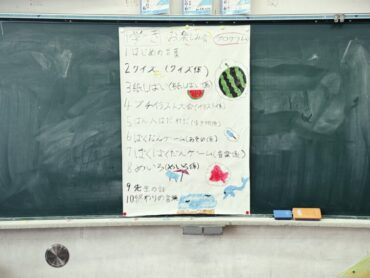 1学き お楽しみ会 プログラム
1 はじめの言葉
2 クイズ (クイズ係)
3 紙しばい(紙しばい係)
4 プチイラスト大会(イラスト係)
5
6 ばくだんゲーム(あそび係)
7 ばくばくだんゲーム(音楽係)
8 めいろ(めいろ係)
9 先生の話
10 終わりの言葉